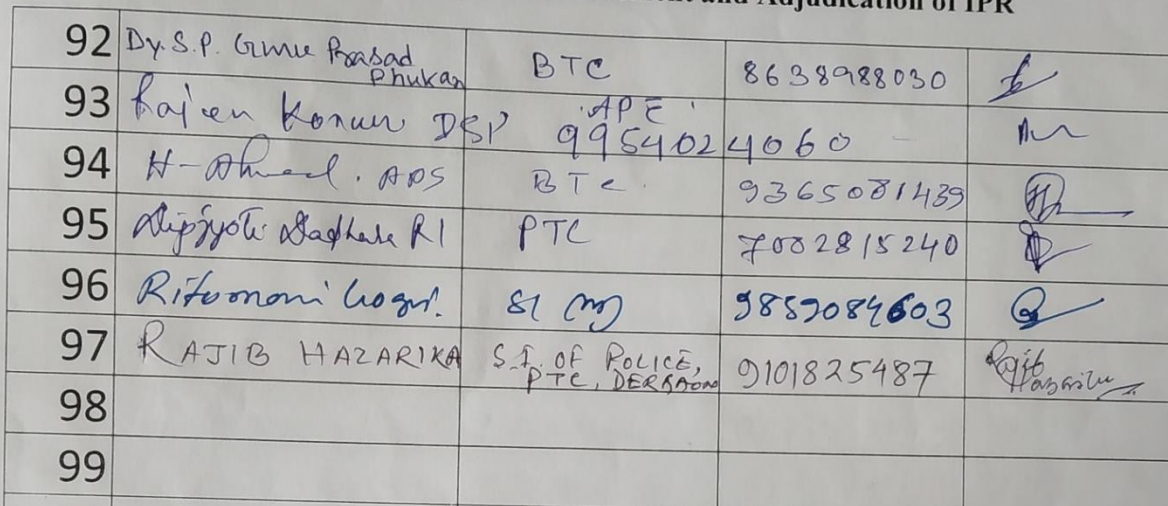 and Adjudication of IPR
92 Dy. S.P. Prasad Phukan BTC 8638988030
93 Rajen Konwer DSP APE 9954024060
94 H- Ahmed. ADS BTC. 9365081439
95 Dipjyoti RI PTC 7002815240
96 SI 9859084603
97 RAJIB HAZARIKA S.I. OF POLICE, PTC, DERGAON 9101825487 Rajib Hazarika
98
99